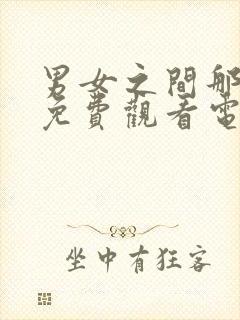 男女之間那
免費觀看電
坐中有狂客